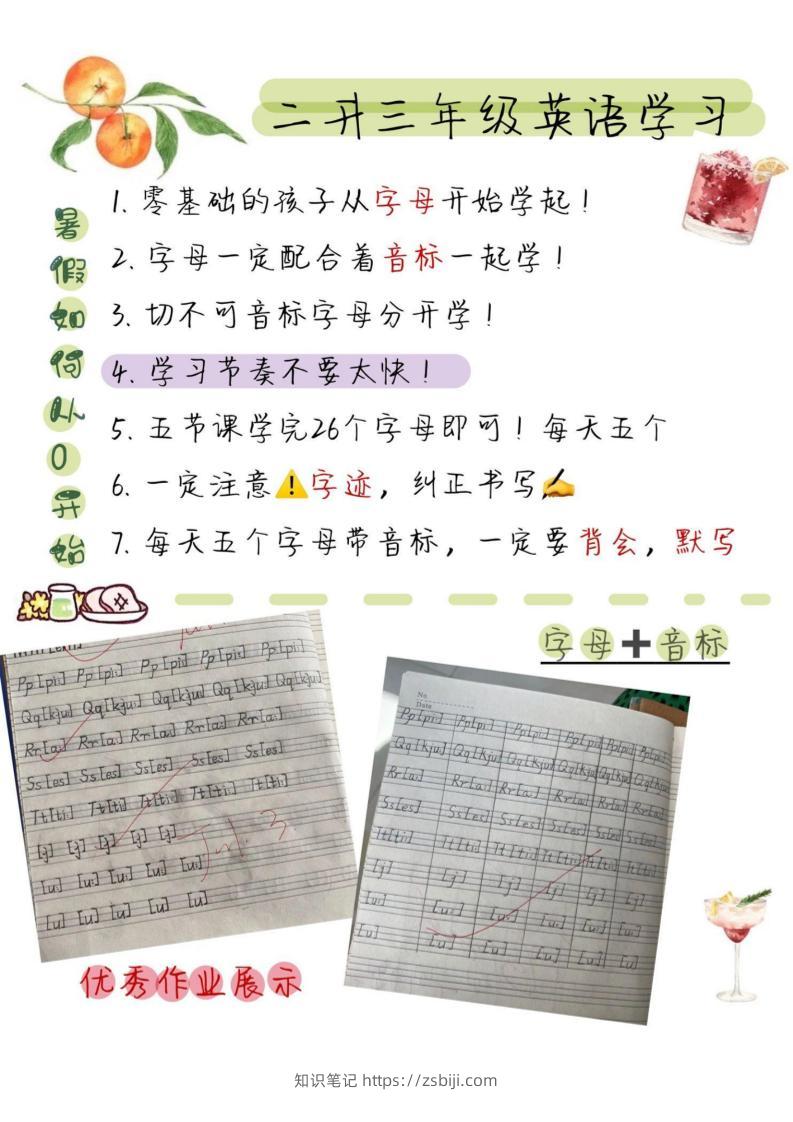 二升三年级英语学习
暑假如何从0开始
1. 零基础的孩子从字母开始学起！
2. 字母一定配合着音标一起学！
3. 切不可音标字母分开学！
4. 学习节奏不要太快！
5. 五节课学完26个字母即可！每天五个
6. 一定注意⚠️字迹，纠正书写✍️
7. 每天五个字母带音标，一定要背会，默写
字母➕音标
Pp [pi:] Pp [pi:] Pp [pi:] Pp [pi:] Pp [pi:]
Qq [kju:] Qq [kju:] Qq [kju:] Qq [kju:] Qq [kju:]
Rr [a:] Rr [a:] Rr [a:] Rr [a:] Rr [a:]
Ss [es] Ss [es] Ss [es] Ss [es] Ss [es]
Tt [ti:] Tt [ti:] Tt [ti:] Tt [ti:] Tt [ti:]
[j] [j] [j] [j] [j]
[u:] [u:] [u:] [u:] [u:]
[u] [u] [u] [u] [u]
No.
Date
Pp [pi:] Pp [pi:] Pp [pi:] Pp [pi:] Pp [pi:] Pp [pi:]
Qq [kju:] Qq [kju:] Qq [kju:] Qq [kju:] Qq [kju:] Qq [kju:]
Rr [a:] Rr [a:] Rr [a:] Rr [a:] Rr [a:] Rr [a:]
Ss [es] Ss [es] Ss [es] Ss [es] Ss [es] Ss [es]
Tt [ti:] Tt [ti:] Tt [ti:] Tt [ti:] Tt [ti:] Tt [ti:]
[j] [j] [j] [j] [j] [j]
[u:] [u:] [u:] [u:] [u:] [u:]
[u] [u] [u] [u] [u] [u]
优秀作业展示
知识笔记 https://zsbiji.com